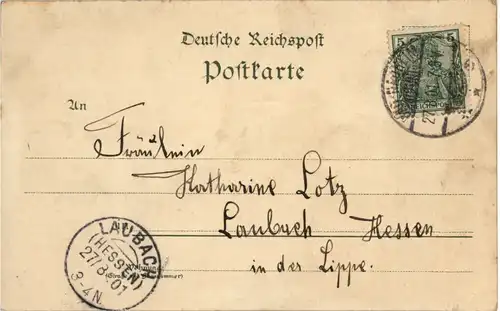 Deutsche Reichspost
Postkarte
5 5
An
Fräulein
Katharine Lotz
Laubach Hessen
in der Lippe.
LAUBACH
(HESSEN)
27/8 01
3-4 N.
Wohnung